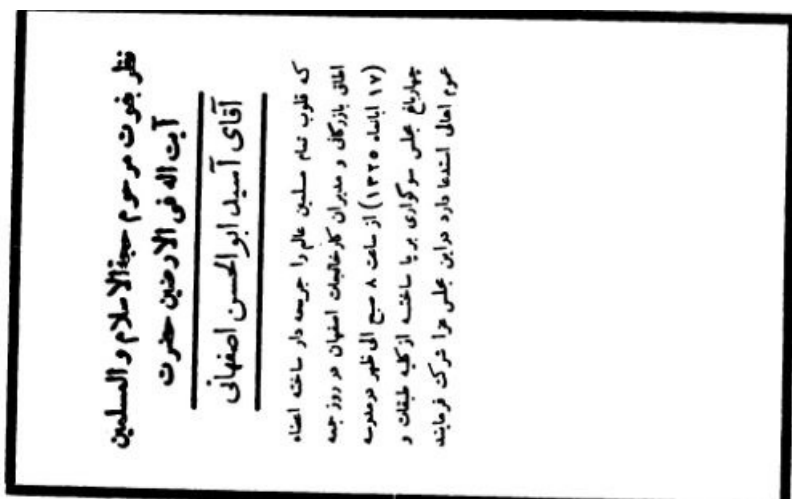 نظر بفوت مرحوم حجةالاسلام و المسلمین
آیت اله فی الارضین حضرت
آقای آسید ابوالحسن اصفهانی
که قلوب تمام مسلمین عالم را جریحه دار ساخته اعضاء
اطاق بازرگانی و مدیران کارخانجات اصفهان در روز جمعه
(۱۷ ابانماه ۱۳۲۵) از ساعت ۸ صبح الی ظهر در مدرسه
چهارباغ مجلس سوگواری برپا ساخته از کلیه طبقات و
عموم اهالی استدعا دارد در این مجلس عزا شرکت فرمایند